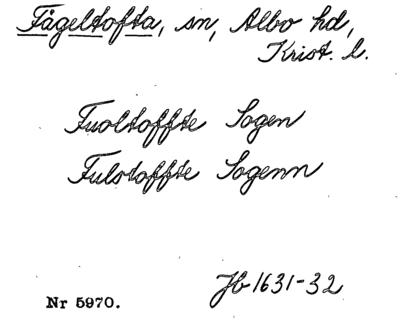 Fågeltofta, sn, Albo hd,
Krist. l.
Fuoltoffte Sogen
Fulstoffte Sogenn
Jb 1631-32
Nr 5970.